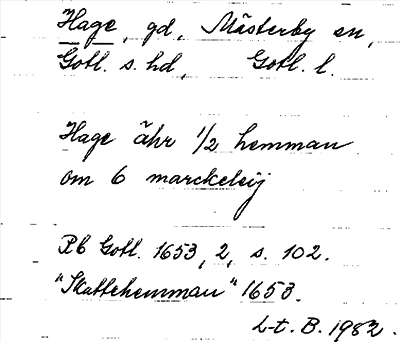 Hage, gd, Mästerby sn,
Gotl. s. hd, Gotl. l.
Hage ähr 1/2 hemman
om 6 marckeleij
Rb Gotl. 1653, 2, s. 102.
"Skattehemman" 1653.
L-t. B. 1982.